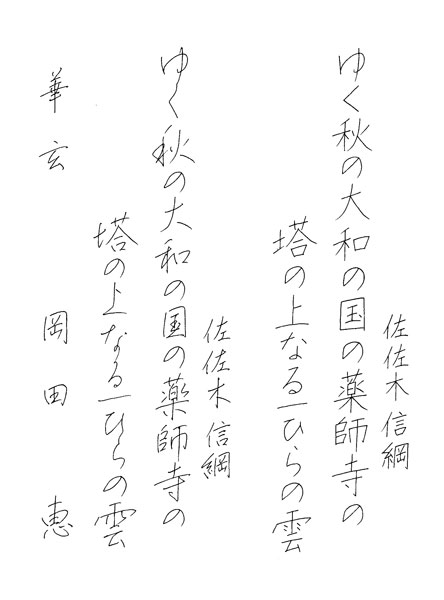 ゆく秋の大和の国の薬師寺の
塔の上なる一ひらの雲
佐佐木信綱
ゆく秋の大和の国の薬師寺の
塔の上なる一ひらの雲
佐佐木信綱
華玄 岡田 恵